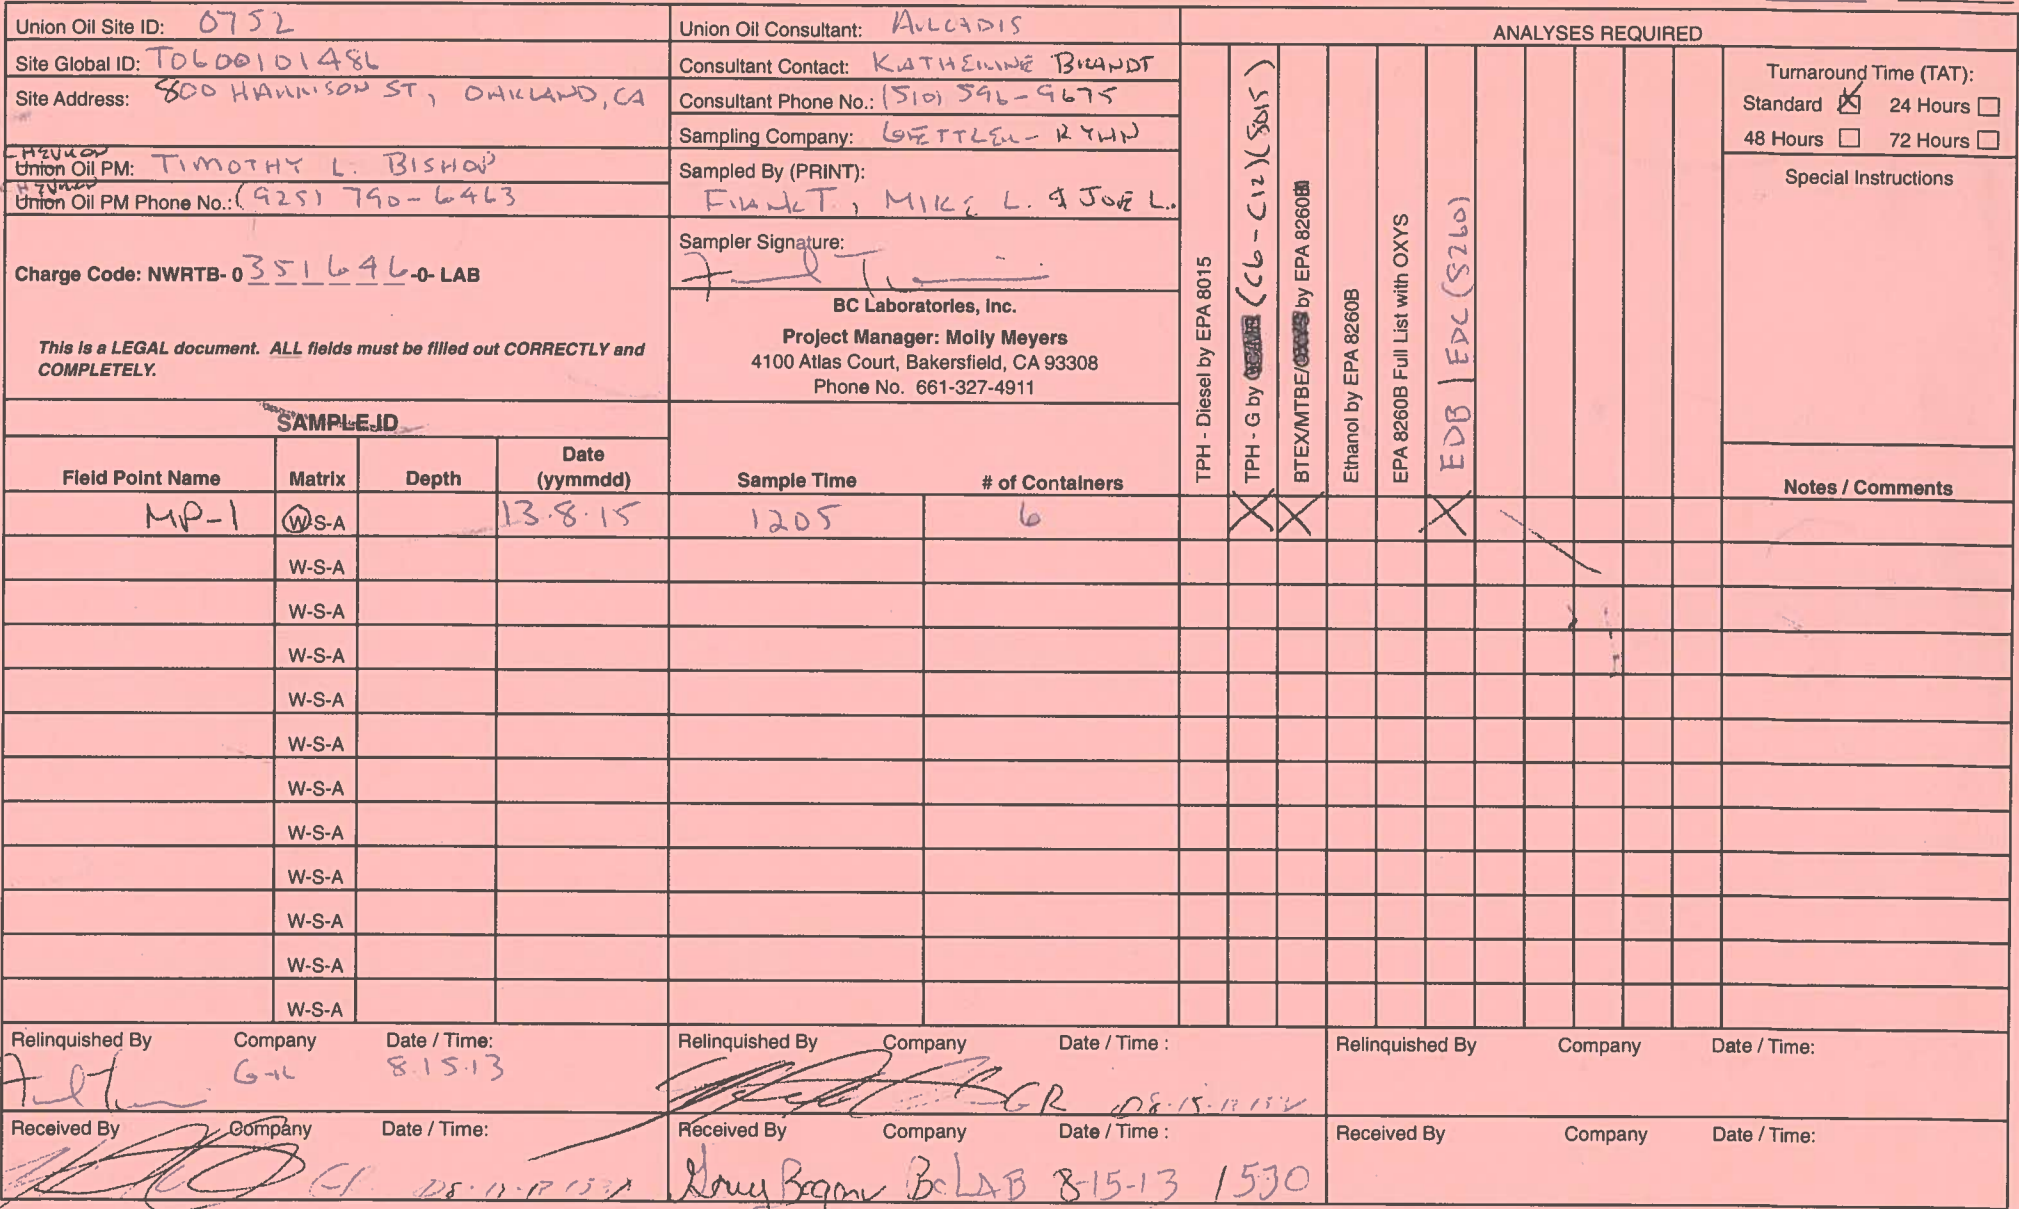 Union Oil Site ID: 0752
Site Global ID: T0600101486
Site Address: 800 HARRISON ST, OAKLAND, CA
CHEVRON
Union Oil PM: TIMOTHY L. BISHOP
CHEVRON
Union Oil PM Phone No.: (925) 790-6463
Charge Code: NWRTB- 0 351646 -0- LAB
This is a LEGAL document. ALL fields must be filled out CORRECTLY and
COMPLETELY.
Union Oil Consultant: ARCADIS
Consultant Contact: KATHERINE BRANDT
Consultant Phone No.: (510) 596-9675
Sampling Company: GETTLER-RYAN
Sampled By (PRINT):
FRANK T, MIKE L. & JOE L.
Sampler Signature:
BC Laboratories, Inc.
Project Manager: Molly Meyers
4100 Atlas Court, Bakersfield, CA 93308
Phone No. 661-327-4911
ANALYSES REQUIRED
TPH - Diesel by EPA 8015
TPH - G by (C6-C12)(8015)
BTEX/MTBE/ by EPA 8260B
Ethanol by EPA 8260B
EPA 8260B Full List with OXYS
EDB / EDC (8260)
Turnaround Time (TAT):
Standard 24 Hours
48 Hours 72 Hours
Special Instructions
SAMPLE ID
Field Point Name Matrix Depth Date (yymmdd) Sample Time # of Containers Notes / Comments
MP-1 W-S-A 13.8.15 1205 6 X X X
W-S-A
W-S-A
W-S-A
W-S-A
W-S-A
W-S-A
W-S-A
W-S-A
W-S-A
W-S-A
W-S-A
Relinquished By Company Date / Time:
G-R 8.15.13
Relinquished By Company Date / Time :
GR 08-15-13
Relinquished By Company Date / Time:
Received By Company Date / Time:
Received By Company Date / Time :
BC LAB 8-15-13 1530
Received By Company Date / Time: